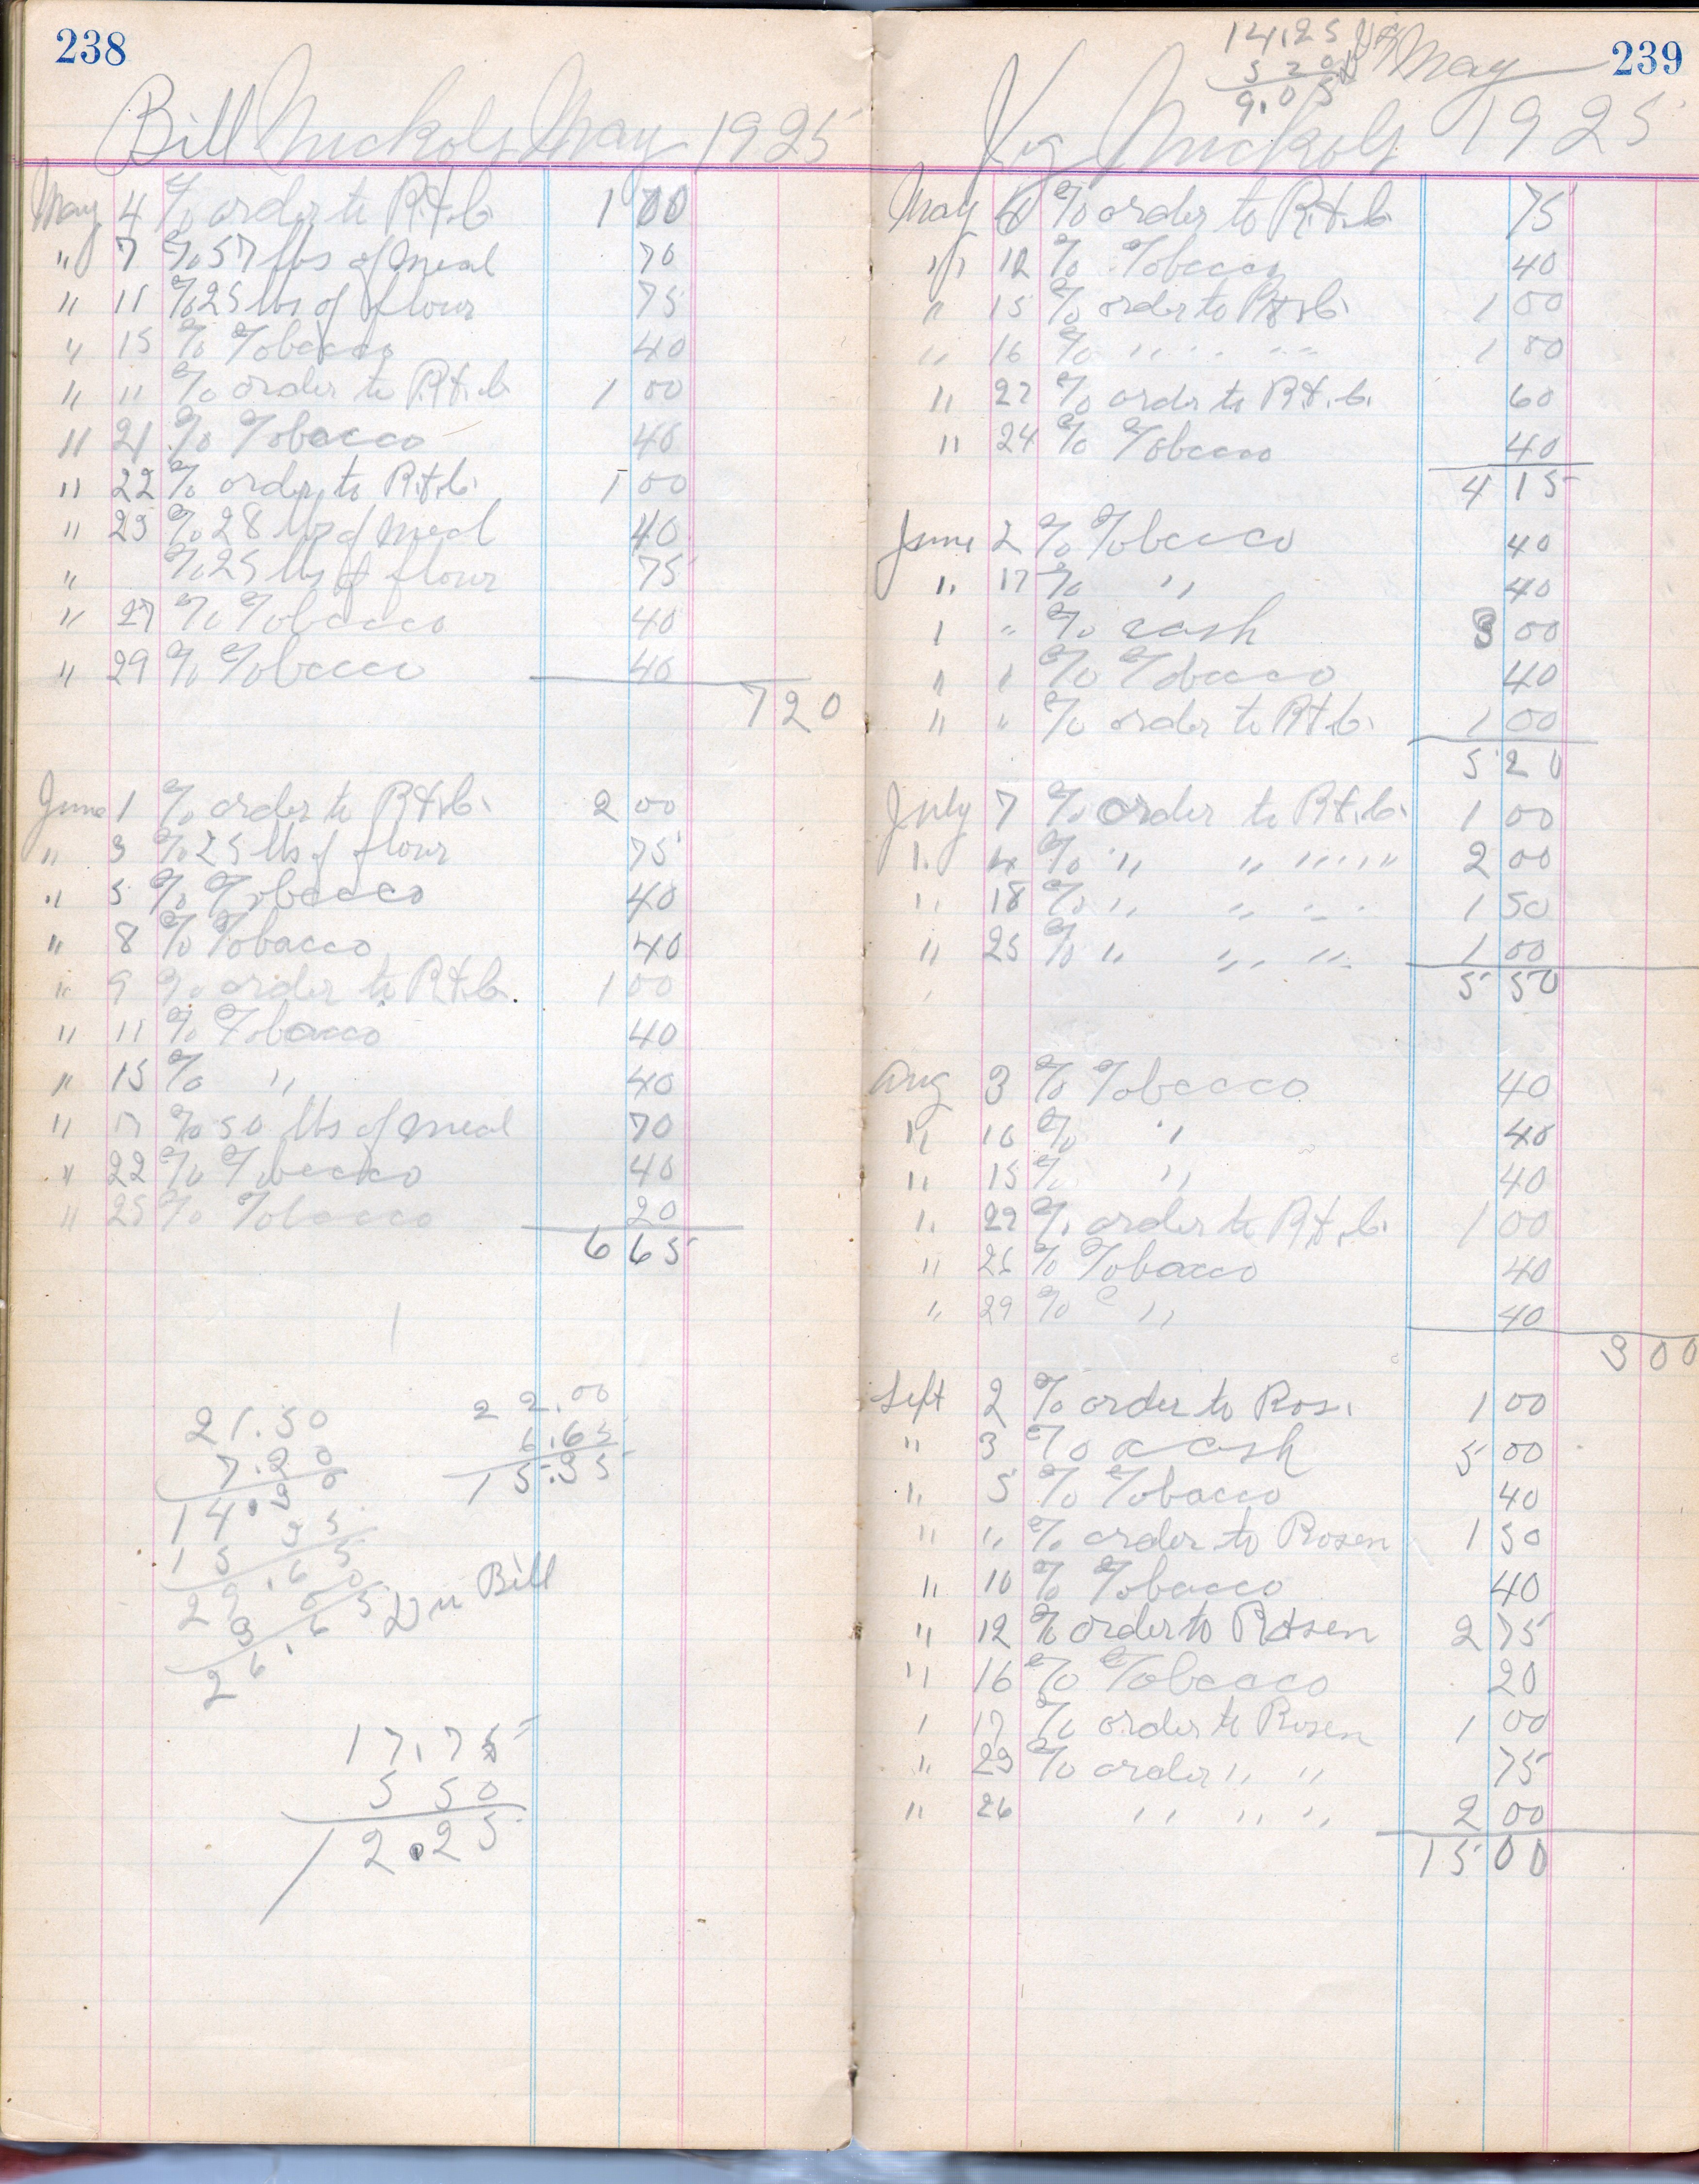 238
Bill Nickols May 1925
May 4 % order to R.+.C. 1 00
" 7 % 57 lbs of meal 70
" 11 % 25 lbs of flour 75
" 15 % Tobacco 40
" " % order to R.+.C. 1 00
" 21 % Tobacco 40
" 22 % order to R.+.C. 1 00
" 25 % 28 lbs of meal 40
" % 25 lbs of flour 75
" 27 % Tobacco 40
" 29 % Tobacco 40
7 20
June 1 % order to R.+.C. 2 00
" 3 % 25 lbs of flour 75
" 5 % Tobacco 40
" 8 % Tobacco 40
" 9 % order to R.+.C. 1 00
" 11 % Tobacco 40
" 15 % " 40
" 17 % 50 lbs of meal 70
" 22 % Tobacco 40
" 25 % Tobacco 20
6 65
21.50
7.20
14.30
15 35
29.65
3 00
26.65 Du Bill
22.00
6.65
15.35
17.75
5 50
12.25
239
14.25
5 20
9.05
May
Nickols 1925
May 6 % order to R.+.C. 75
" 12 % Tobacco 40
" 15 % order to R.+.C. 1 00
" 16 % " " " " 1 00
" 22 % order to R.+.C. 60
" 24 % Tobacco 40
4 15
June 2 % Tobacco 40
" 17 % " 40
" " % cash 3 00
" " % Tobacco 40
" " % order to R.+.C. 1 00
5 20
July 7 % order to R.+.C. 1 00
" 4 % " " " " " 2 00
" 18 % " " " " 1 50
" 25 % " " " 1 00
5 50
Aug 3 % Tobacco 40
" 10 % " 40
" 15 % " 40
" 22 % order to R.+.C. 1 00
" 26 % Tobacco 40
" 29 % " 40
3 00
Sept 2 % order to Ros. 1 00
" 3 % cash 5 00
" 5 % Tobacco 40
" " % order to Rosen 1 50
" 10 % Tobacco 40
" 12 % order to Rosen 2 75
" 16 % Tobacco 20
" 17 % order to Rosen 1 00
" 23 % order " " 75
" 26 " " " 2 00
15 00